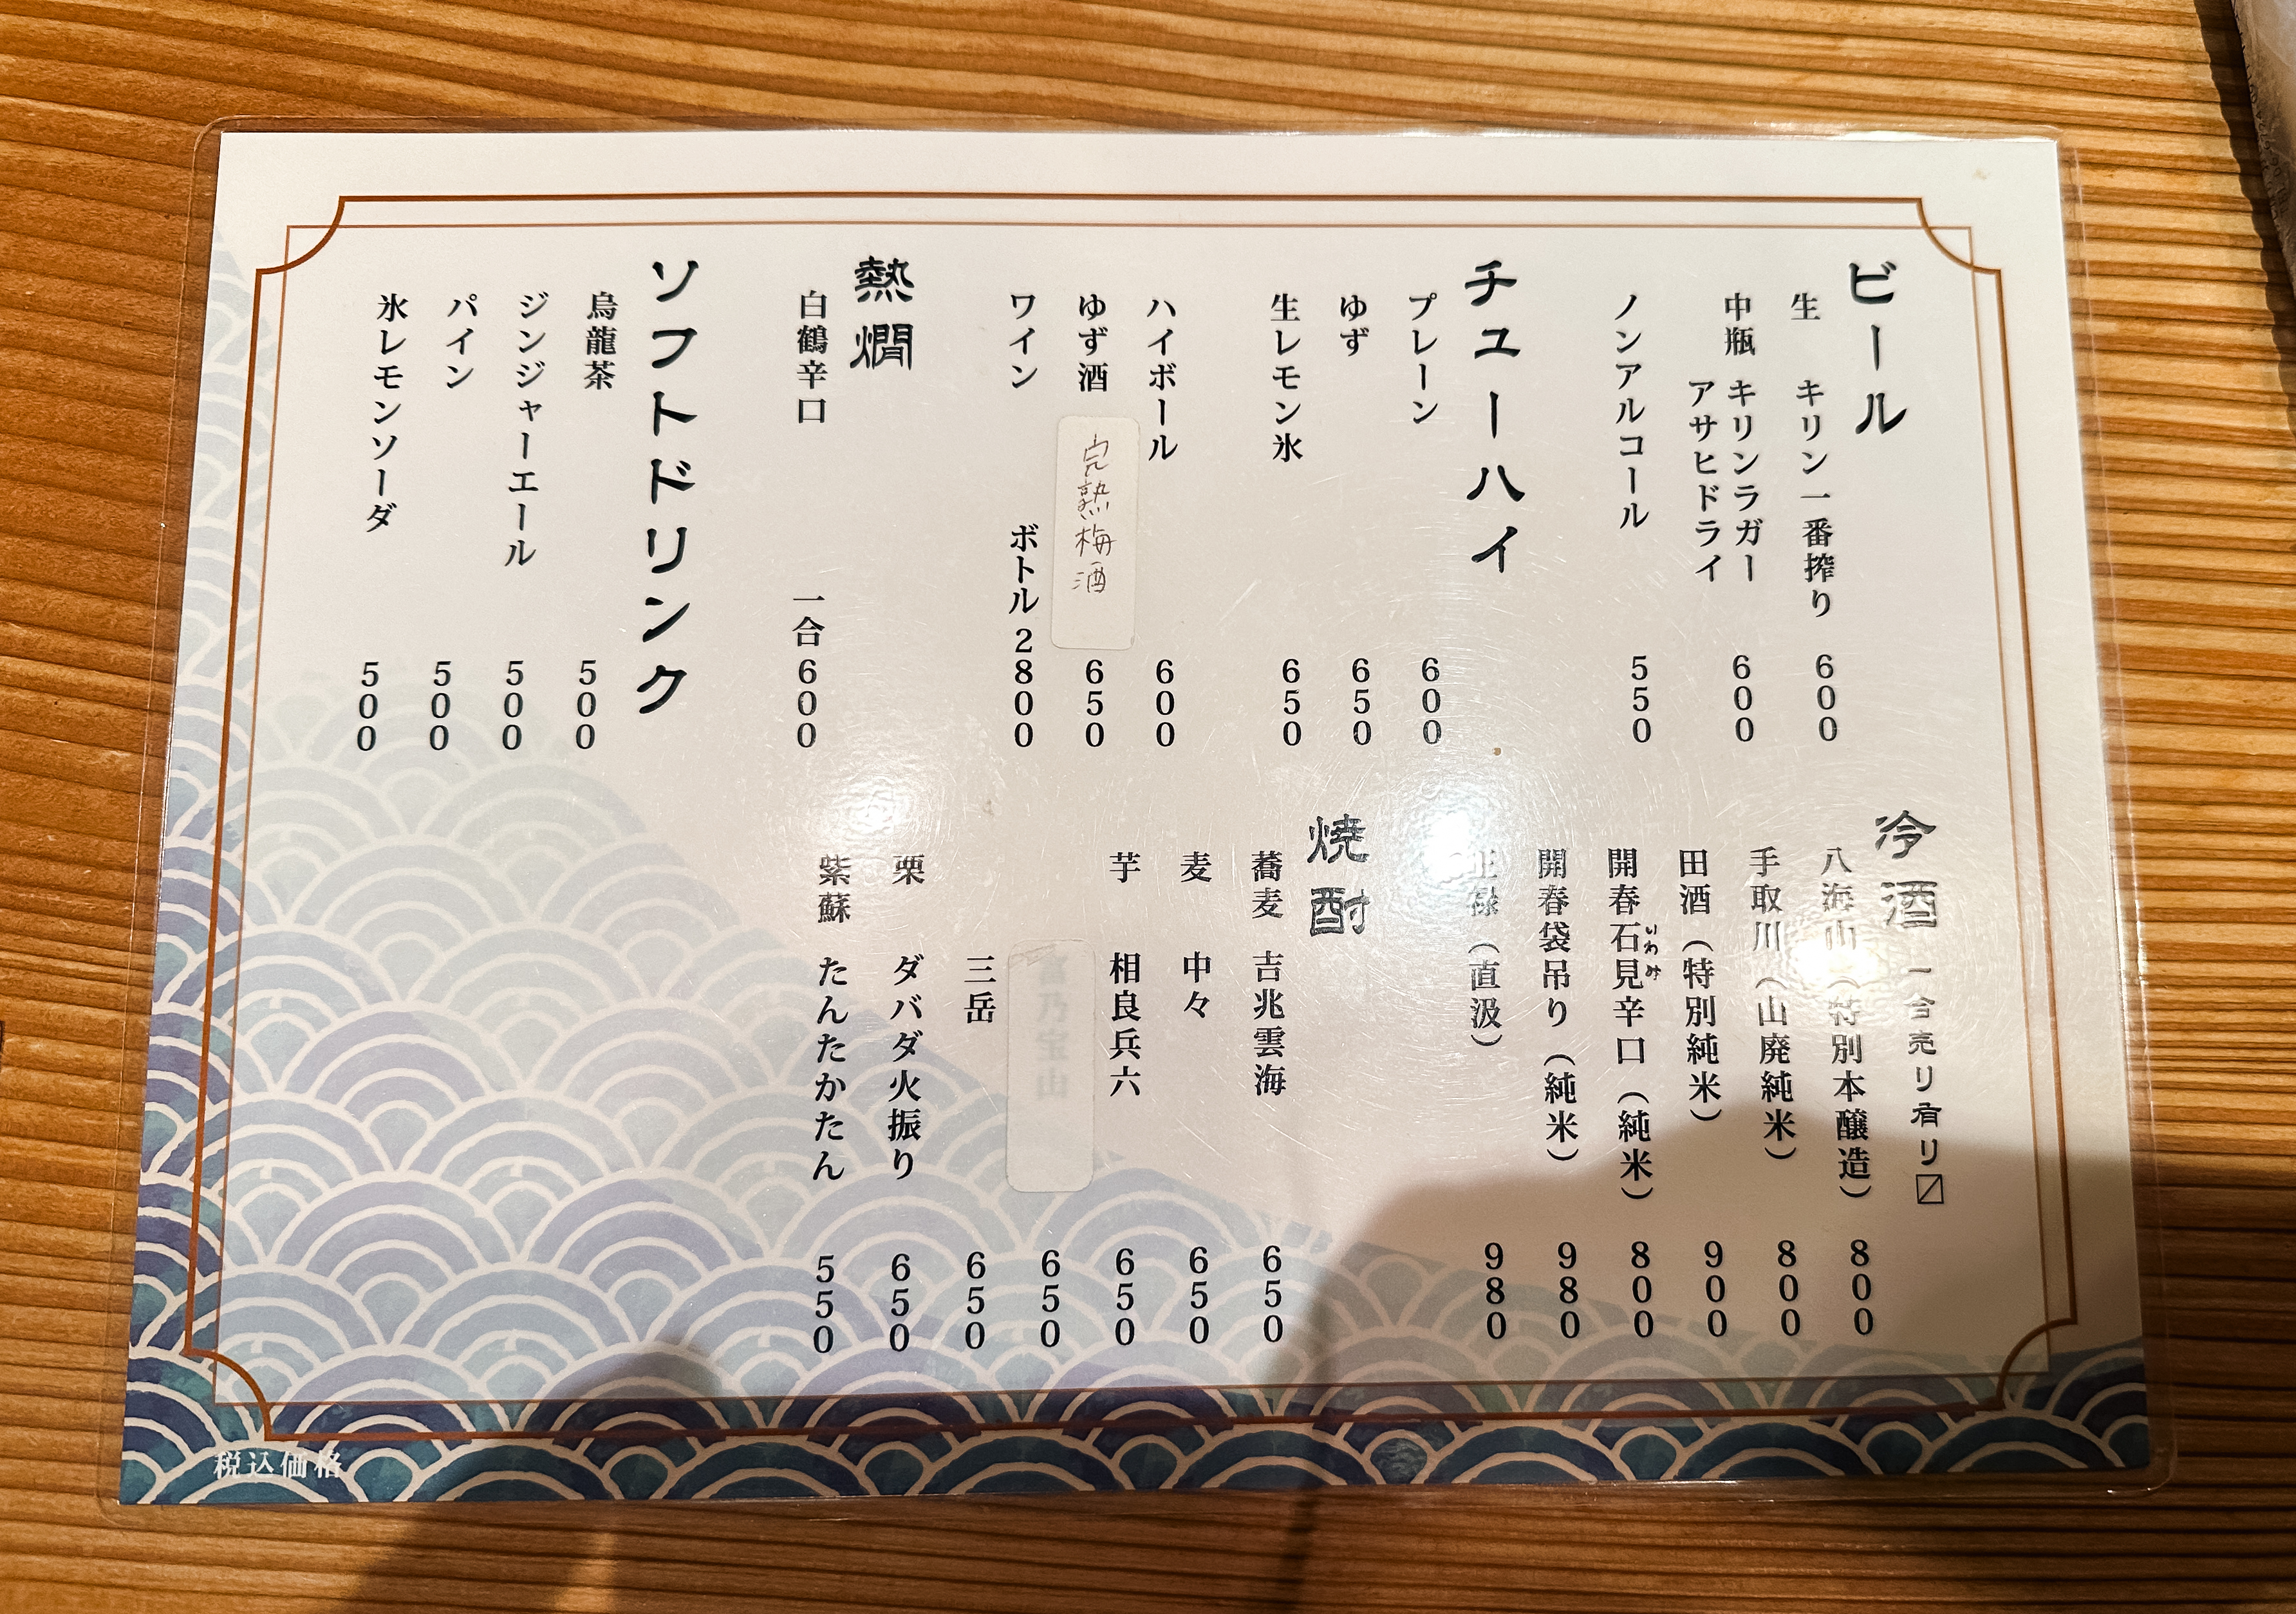 ビール
生 キリン一番搾り 600
中瓶 キリンラガー 600
アサヒドライ
ノンアルコール 550
チューハイ
プレーン 600
ゆず 650
生レモン氷 650
ハイボール 600
ゆず酒 650
完熟梅酒
ワイン ボトル 2800
熱燗
白鶴辛口 一合 600
ソフトドリンク
烏龍茶 500
ジンジャーエール 500
パイン 500
氷レモンソーダ 500
冷酒 一合売り有り〼
八海山（特別本醸造） 800
手取川（山廃純米） 800
田酒（特別純米） 900
開春石見辛口（純米） 800
いわみ
開春袋吊り（純米） 980
王祿（直汲） 980
焼酎
蕎麦 吉兆雲海 650
麦 中々 650
芋 相良兵六 650
富乃宝山 650
三岳 650
栗 ダバダ火振り 650
紫蘇 たんたかたん 550
税込価格